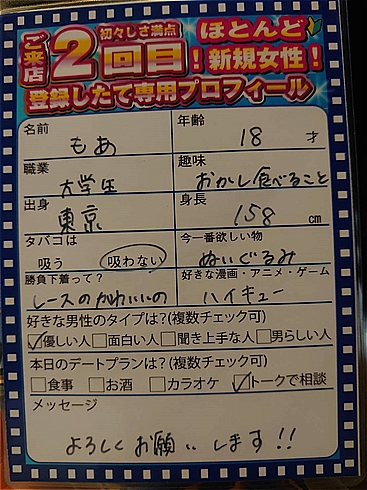 ご来店2回目!
初々しさ満点
ほとんど新規女性!
登録したて専用プロフィール
名前 もあ
年齢 18 才
職業 大学生
趣味 おかし食べること
出身 東京
身長 158 cm
タバコは 吸う 吸わない
今一番欲しい物 ぬいぐるみ
勝負下着って? レースのかわいいの
好きな漫画・アニメ・ゲーム ハイキュー
好きな男性のタイプは?(複数チェック可)
優しい人 面白い人 聞き上手な人 男らしい人
本日のデートプランは?(複数チェック可)
食事 お酒 カラオケ トークで相談
メッセージ
よろしくお願いします!!